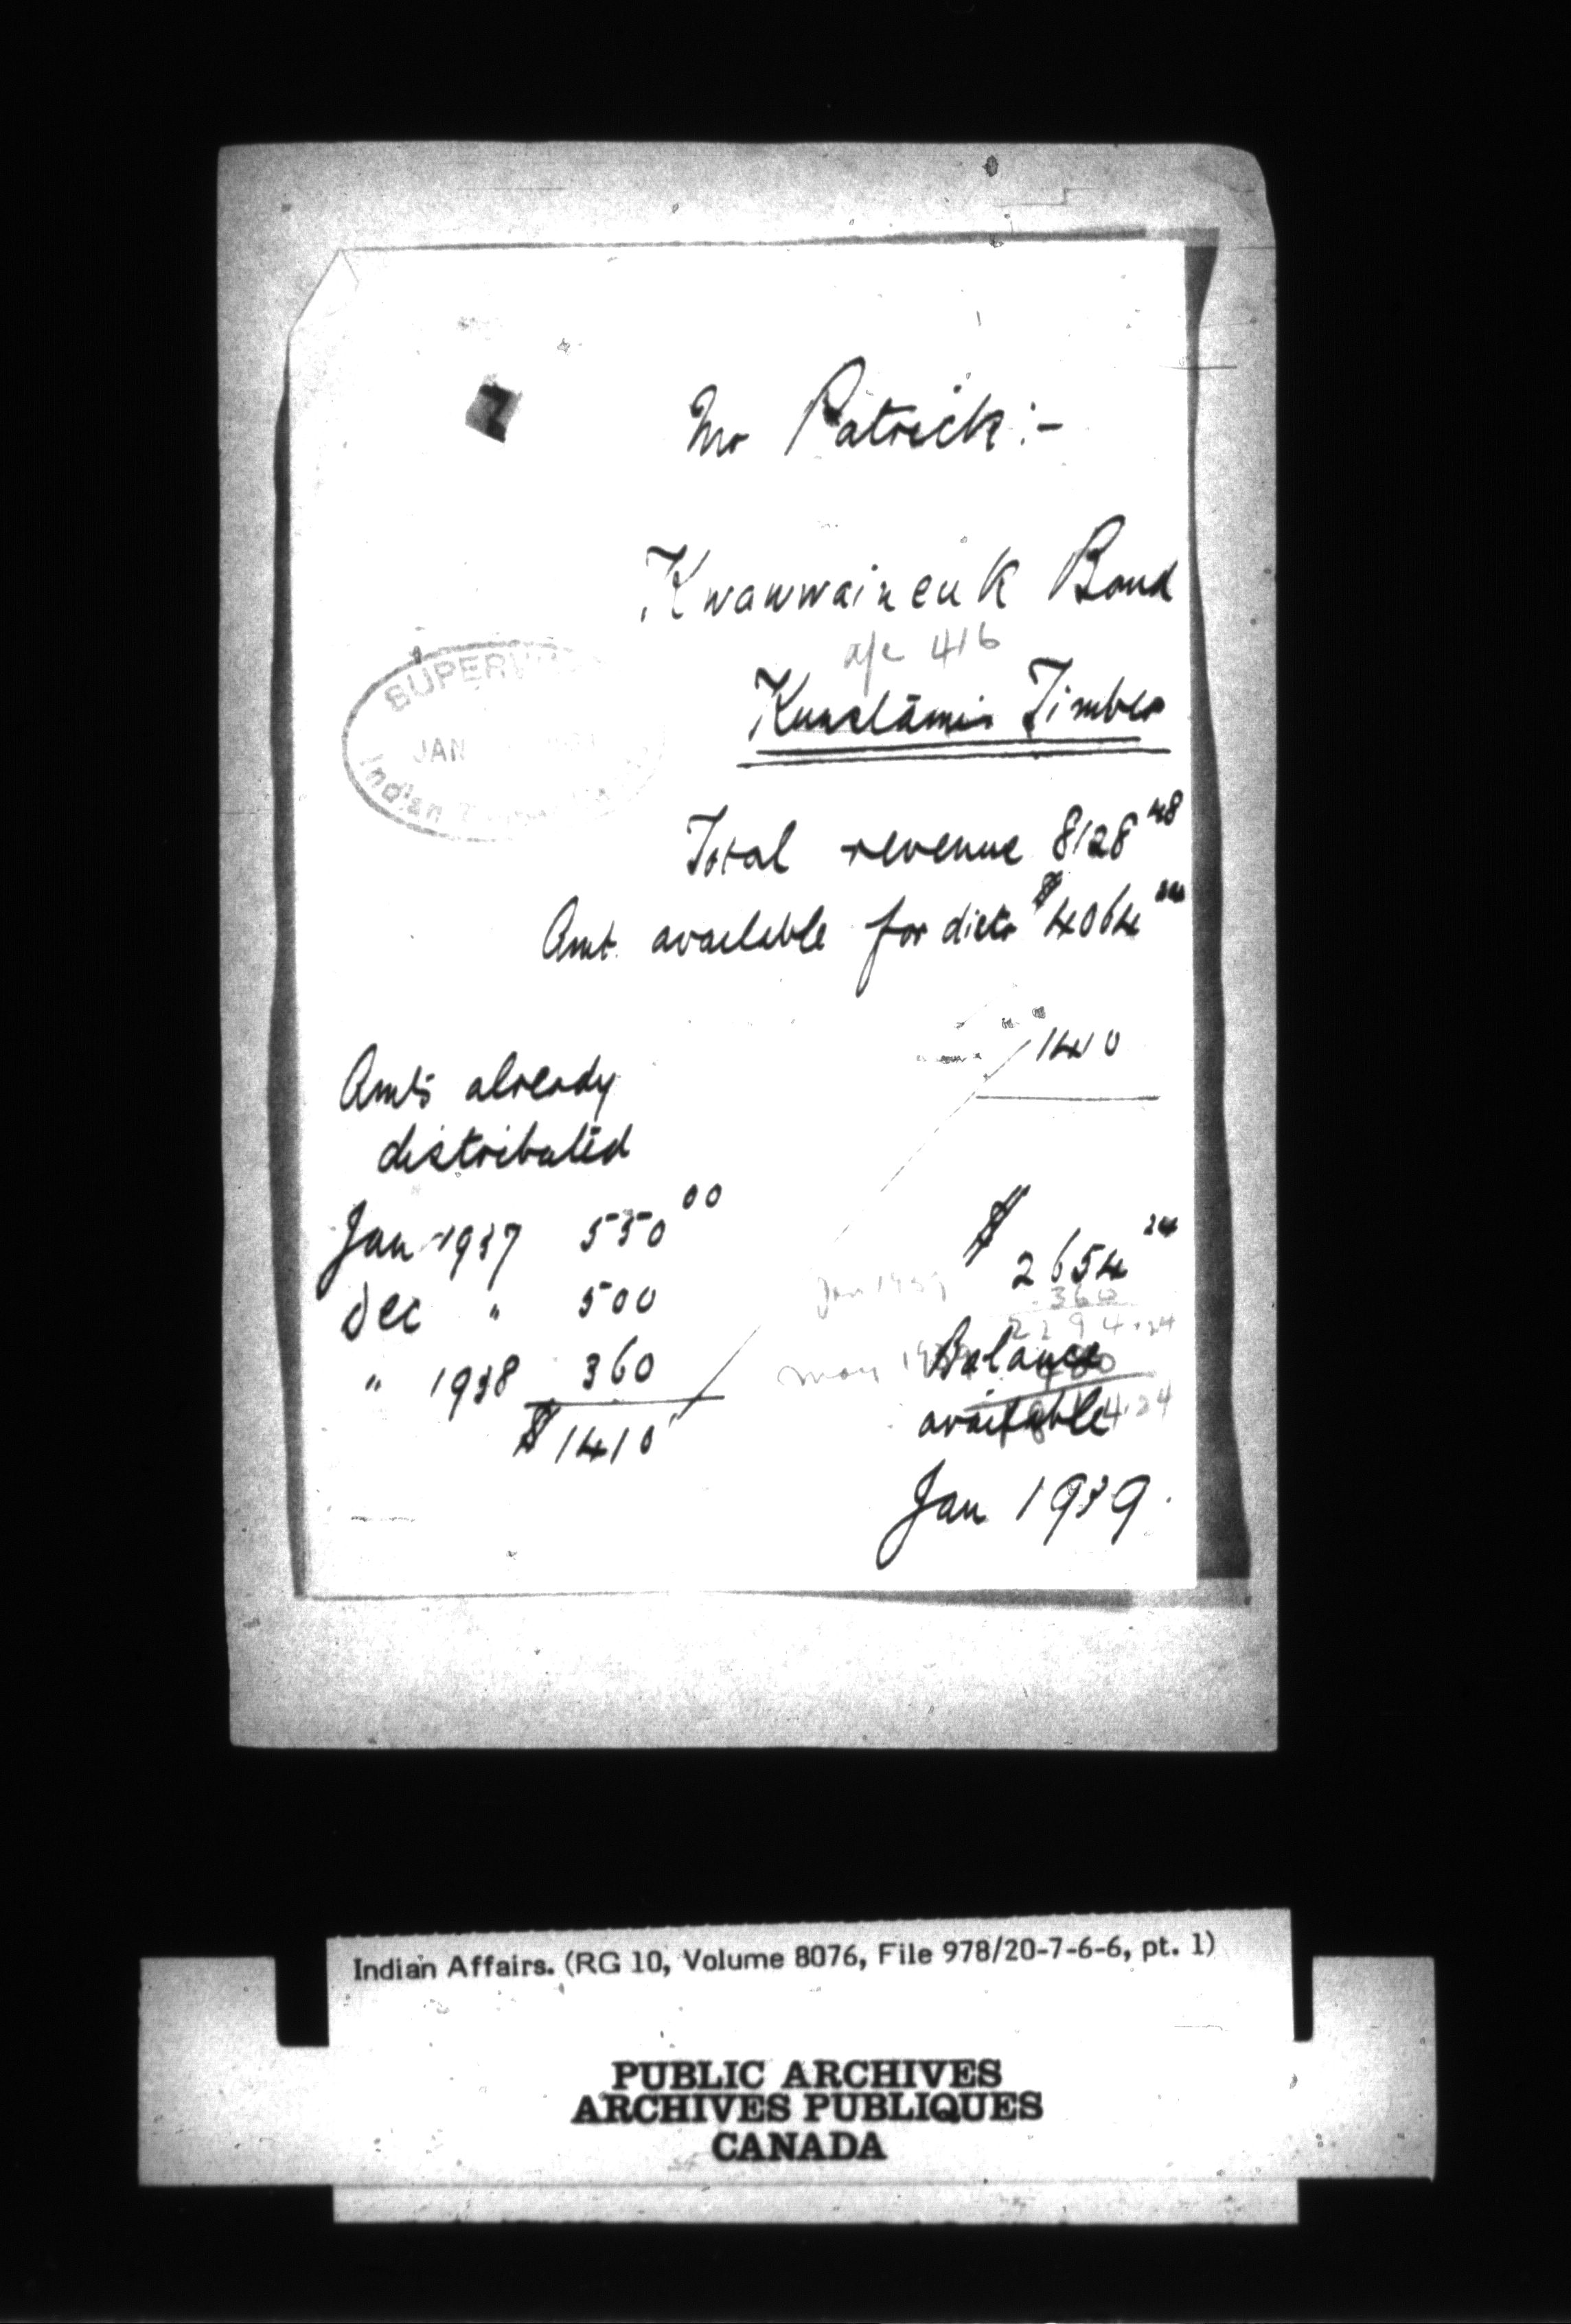 Mr Patrick:-
Kwawwaineuk Band
a/c 416
Timber
SUPERV
JAN
Indian
Total revenue 8128 48
Amt. available for distr $4064 24
1410
Amts already
distributed
Jan 1937 550 00
Dec " 500
" 1938 360
$1410
$ 2654 24
Jan 1939 360
2294.24
May
4.24
Balance
available
Jan 1939.
Indian Affairs. (RG 10, Volume 8076, File 978/20-7-6-6, pt. 1)
PUBLIC ARCHIVES
ARCHIVES PUBLIQUES
CANADA